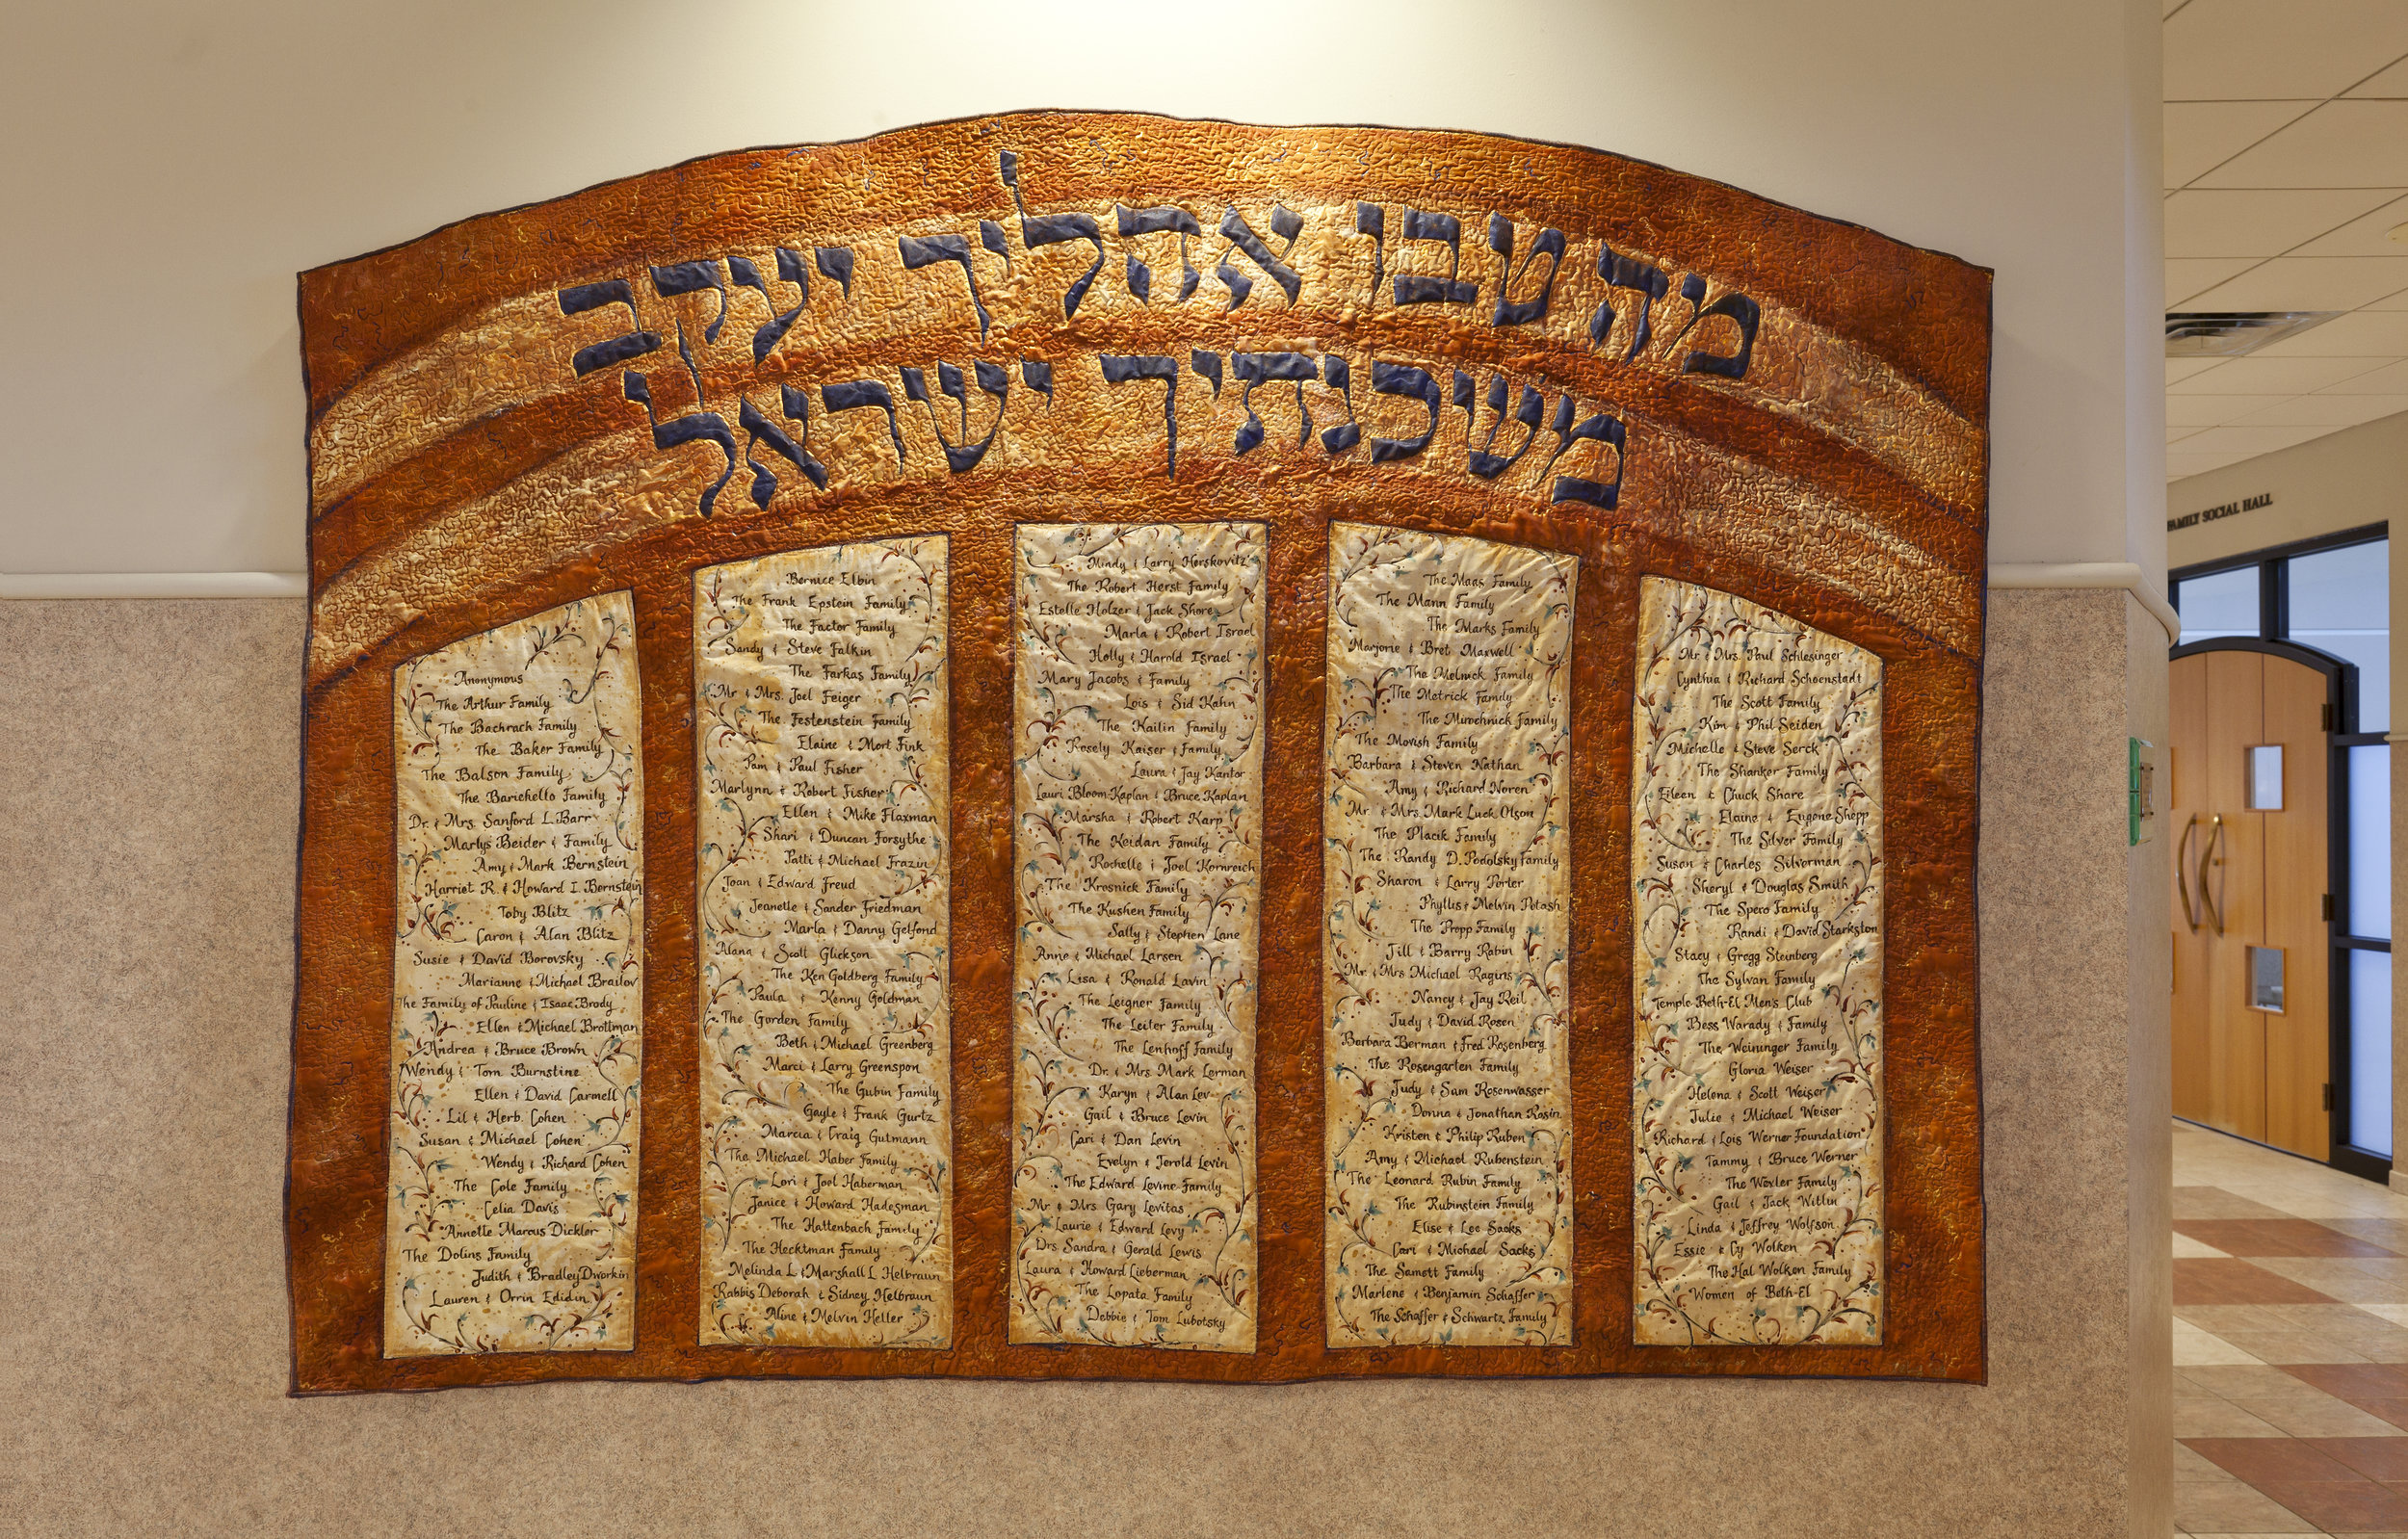 מה טבו אהליך יעקב
משכנתיך ישראל
Anonymous
The Arthur Family
The Bachrach Family
The Baker Family
The Balson Family
The Barichello Family
Dr. & Mrs. Sanford L. Barr
Marlys Beider & Family
Amy & Mark Bernstein
Harriet R. & Howard I. Bernstein
Toby Blitz
Caron & Alan Blitz
Susie & David Borovsky
Marianne & Michael Brailov
The Family of Pauline & Isaac Brody
Ellen & Michael Brottman
Andrea & Bruce Brown
Wendy & Tom Burnstine
Ellen & David Carmell
Lil & Herb Cohen
Susan & Michael Cohen
Wendy & Richard Cohen
The Cole Family
Celia Davis
Annette Marcus Dickler
The Dolins Family
Judith & Bradley Dworkin
Lauren & Orrin Edidin
Bernice Elbin
The Frank Epstein Family
The Factor Family
Sandy & Steve Falkin
The Farkas Family
Mr. & Mrs. Joel Feiger
The Festenstein Family
Elaine & Mort Fink
Pam & Paul Fisher
Marlynn & Robert Fisher
Ellen & Mike Flaxman
Shari & Duncan Forsythe
Patti & Michael Frazin
Joan & Edward Freud
Jeanette & Sander Friedman
Marla & Danny Gelfond
Alana & Scott Glickson
The Ken Goldberg Family
Paula & Kenny Goldman
The Gorden Family
Beth & Michael Greenberg
Marci & Larry Greenspon
The Gubin Family
Gayle & Frank Gurtz
Marcia & Craig Gutmann
The Michael Haber Family
Lori & Joel Haberman
Janice & Howard Hadesman
The Hattenbach Family
The Hecktman Family
Melinda L & Marshall L Helbraun
Rabbis Deborah & Sidney Helbraun
Aline & Melvin Heller
Mindy & Larry Herskovitz
The Robert Herst Family
Estelle Holzer & Jack Shore
Marla & Robert Israel
Holly & Harold Israel
Mary Jacobs & Family
Lois & Sid Kahn
The Kailin Family
Rosely Kaiser & Family
Laura & Jay Kantor
Lauri Bloom Kaplan & Bruce Kaplan
Marsha & Robert Karp
The Keidan Family
Rochelle & Joel Kornreich
The Krosnick Family
The Kushen Family
Sally & Stephen Lane
Anne & Michael Larsen
Lisa & Ronald Lavin
The Leigner Family
The Leiter Family
The Lenhoff Family
Dr. & Mrs. Mark Lerman
Karyn & Alan Lev
Gail & Bruce Levin
Cari & Dan Levin
Evelyn & Jerold Levin
The Edward Levine Family
Mr & Mrs Gary Levitas
Laurie & Edward Levy
Drs. Sandra & Gerald Lewis
Laura & Howard Lieberman
The Lopata Family
Debbie & Tom Lubotsky
The Maas Family
The Mann Family
The Marks Family
Marjorie & Bret Maxwell
The Melnick Family
The Metrick Family
The Mirochnick Family
The Movish Family
Barbara & Steven Nathan
Amy & Richard Noren
Mr. & Mrs. Mark Luck Olson
The Placik Family
The Randy D. Podolsky Family
Sharon & Larry Porter
Phyllis & Melvin Potash
The Propp Family
Jill & Barry Rabin
Mr. & Mrs Michael Ragins
Nancy & Jay Reil
Judy & David Rosen
Barbara Berman & Fred Rosenberg
The Rosengarten Family
Judy & Sam Rosenwasser
Donna & Jonathan Rosin
Kristen & Philip Ruben
Amy & Michael Rubenstein
The Leonard Rubin Family
The Rubinstein Family
Elise & Lee Sacks
Cari & Michael Sacks
The Samett Family
Marlene & Benjamin Schaffer
The Schaffer & Schwartz Family
Mr. & Mrs. Paul Schlesinger
Cynthia & Richard Schoenstadt
The Scott Family
Kim & Phil Seiden
Michelle & Steve Serck
The Shanker Family
Eileen & Chuck Share
Elaine & Eugene Shepp
The Silver Family
Susan & Charles Silverman
Sheryl & Douglas Smith
The Spero Family
Randi & David Starkston
Stacy & Gregg Steinberg
The Sylvan Family
Temple Beth-El Men's Club
Bess Warady & Family
The Weininger Family
Gloria Weiser
Helena & Scott Weiser
Julie & Michael Weiser
Richard & Lois Werner Foundation
Tammy & Bruce Werner
The Wexler Family
Gail & Jack Witlin
Linda & Jeffrey Wolfson
Essie & Cy Wolken
The Hal Wolken Family
Women of Beth-El
FAMILY SOCIAL HALL